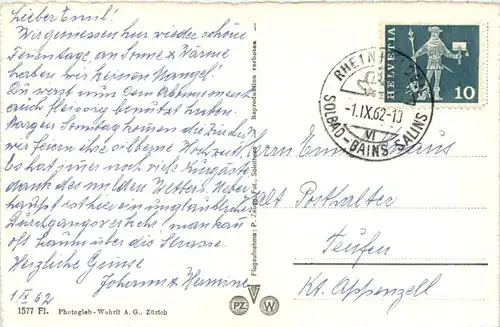 Lieber Emil!
Wir geniessen hier wieder schöne
Ferientage, an Sonne & Wärme
haben wir keinen Mangel!
Du wirst nun dein Abonnement
auch fleissig benützt haben.
Morgen Sonntag kommen die
wir feiern silberne Hochzeit.
Es hat immer noch viele Kurgäste
dank des milden Wetters. Ueber-
haupt ist hier ein unglaublicher
Durchgangsverkehr, man kann
oft kaum über die Strasse.
Herzliche Grüsse
Johann & Hermine
1. IX 62
1577 Fl. Photoglob-Wehrli A. G., Zürich
Flugaufnahme: P. Fot., Solothurn Reproduktion verboten
PZ W
RHEINF
-1.IX.62-10
SOLBAD-BAINS SALINS
HELVETIA
10
Herrn Emil
alt Posthalter
Teufen
Kt. Appenzell